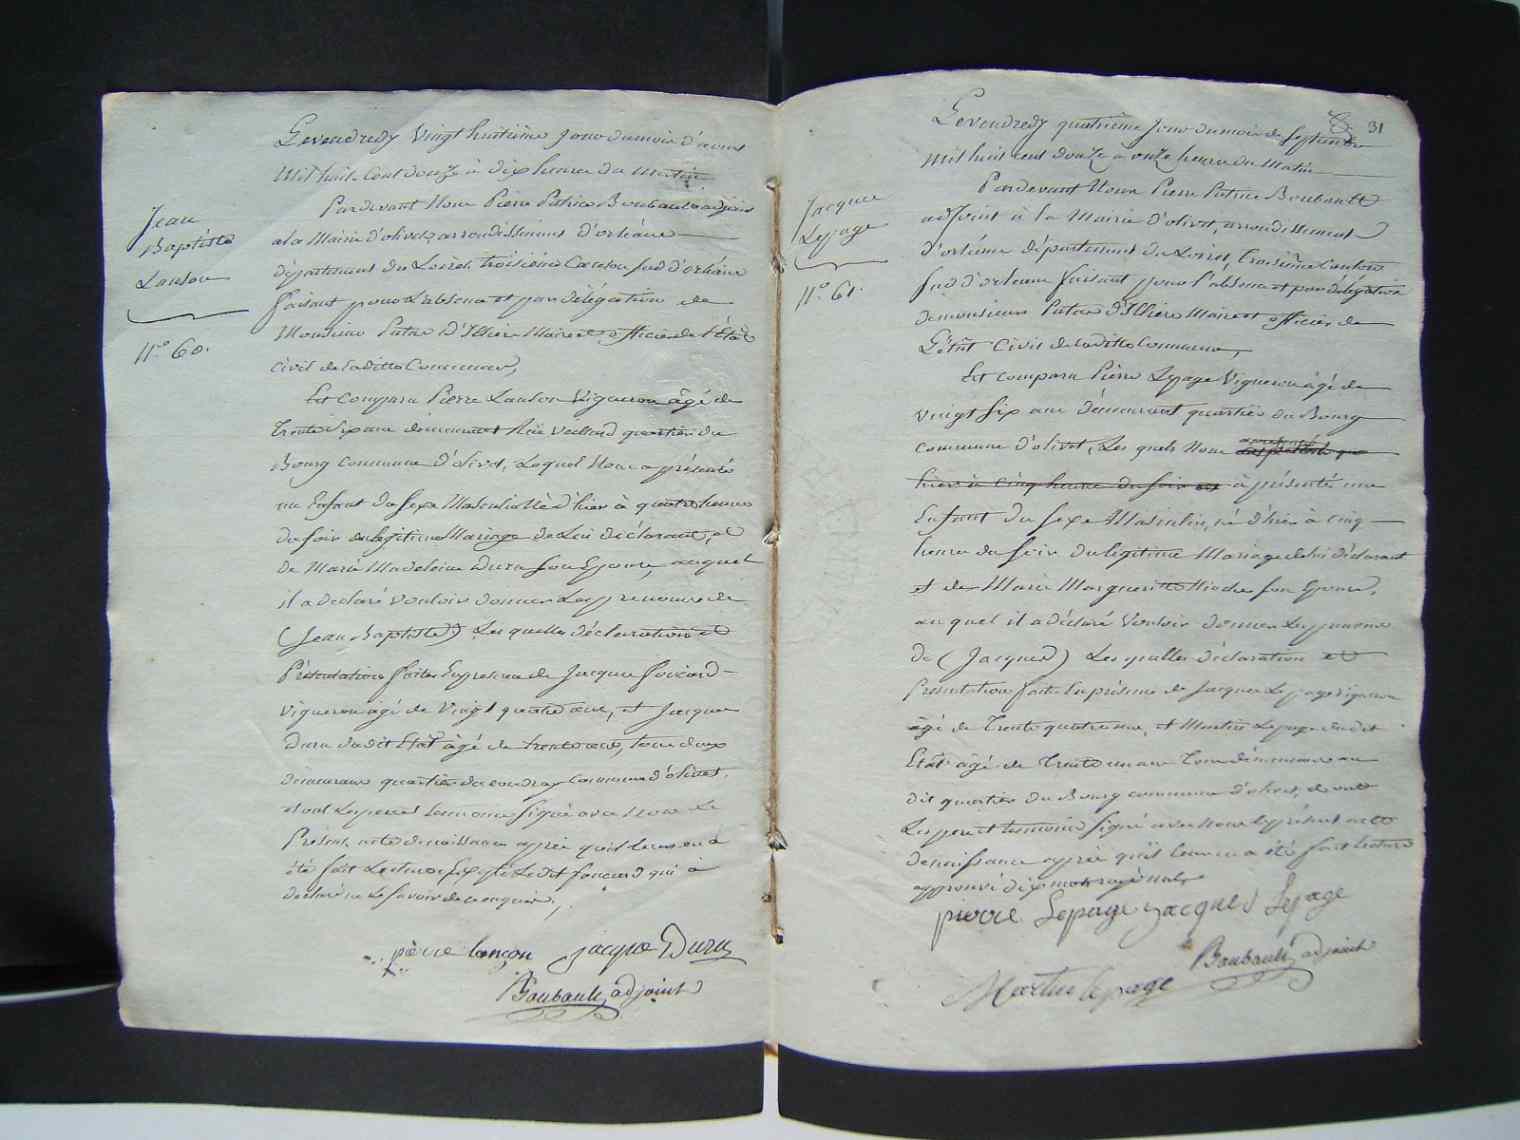 Jean
Baptiste
Lanson
N.° 60.
Le vendredy vingt huitieme jour du mois d'aoust
mil huit Cent douze à dix heures du matin
Pardevant Nous Pierre Patrice Boubault adjoint
a la Mairie d'olivet arrondissement d'orléans
département du Loiret, troisieme Canton sud d'orléans
faisant pour L'absence et par délégation de
Monsieur Patas D'Illiers Maire et officier de l'Etat
Civil de laditte Commune,
Est Comparu Pierre Lanson Vigneron âgé de
trente six ans demeurant quartier du
Bourg commune d'olivet, Lequel Nous a présenté
un Enfant du sexe Masculin Né d'hier à quatre heures
du soir du légitime Mariage de Lui déclarant, et
de Marie Madeleine Duru son Epouse, auquel
il a déclaré vouloir donner Les prenoms de
(Jean Baptiste) Les quelles déclaration et
Présentation faites En presence de Jacques foucard
Vigneron âgé de Vingt quatre ans, et Jacques
Duru dudit Etat âgé de trente ans, tous deux
demeurans quartier du coudray commune d'olivet.
et ont Les pere et temoins signé avec Nous Le
Présent acte de naissance après qu'il leur en à
été fait Lecture Excepté Ledit foucard qui à
déclaré ne Le savoir de ce enquis.
pierre lançon jacque Duru
Boubault adjoint
31
Jacques
Lepage
N.° 61.
Le vendredy quatrieme jour du mois de septembre
mil huit cent douze à onze heures du Matin
Pardevant Nous Pierre Patrice Boubault
adjoint à la Mairie d'olivet, arrondissement
d'orléans département du Loiret, troisieme Canton
sud d'orleans faisant pour l'absence et par délégation
de monsieur Patas D'Illiers Maire et officier de
L'état Civil de laditte Commune,
Est comparu Pierre Lepage Vigneron âgé de
vingt six ans demeurant quartier du Bourg
commune d'olivet, Les quels Nous
hier à cinq heures du soir à présenté un
Enfant du sexe Masculin, né d'hier à cinq
heures du soir du légitime Mariage de lui déclarant
et de Marie Marguerite son Epouse,
au quel il a déclaré Vouloir donner Les prenoms
de (Jacques) Les quelles déclaration et
Présentation faite En présence de Jacques Lepage vigneron
âgé de Trente quatre ans, et Martin Lepage dudit
Etat âgé de Trente un ans Tous demeurans au
dit quartier du Bourg commune d'olivet, et ont
Les pere et temoins signé avec nous le présent acte
de naissance après qu'il leur en a été fait lecture
approuvé dix mots rayés nuls
pierre Lepage jacques Lepage
Boubault adjoint
Martin lepage